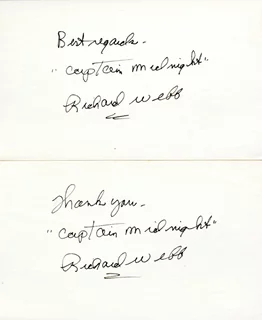 Best regards -
"Captain Midnight"
Richard Webb
Thank you -
"Captain Midnight"
Richard Webb